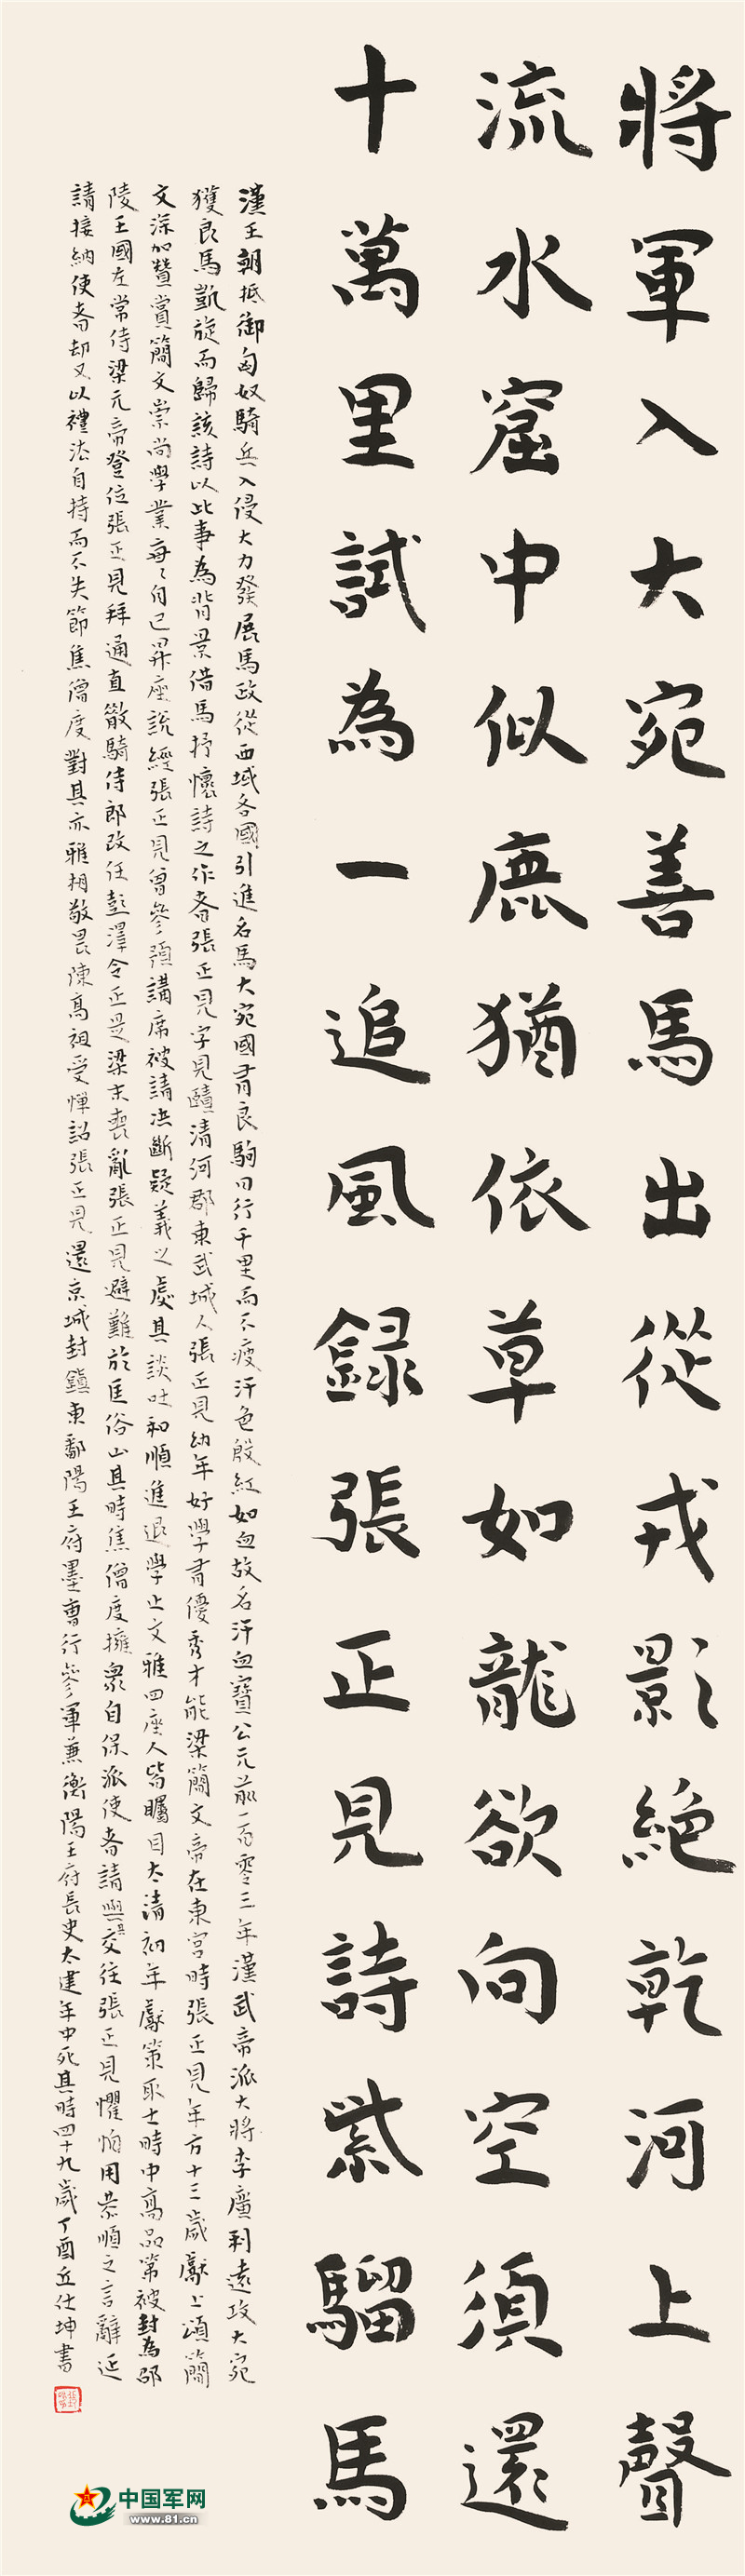 將軍入大宛善馬出從戎影絕乾河上聲
流水窟中似鹿猶依草如龍欲向空須還
十萬里試為一追風錄張正見詩紫騮馬
漢王朝抵御匈奴騎兵入侵大力發展馬政從西域各國引進名馬大宛國有良駒日行千里而不疲汗色殷紅如血故名汗血寶公元前一百零三年漢武帝派大將李廣利遠攻大宛
獲良馬凱旋而歸該詩以此事為背景借馬抒懷詩之作者張正見字見賾清河郡東武城人張正見幼年好學有優秀才能梁簡文帝在東宮時張正見年方十三歲獻上頌簡
文深加贊賞簡文崇尚學業每每自己昇座說經張正見曾參預講席被請決斷疑義之處其談吐和順進退學止文雅四座人皆矚目太清初年獻策取士時中高品第被封為邵
陵王國左常侍梁元帝登位張正見拜通直散騎侍郎改任彭澤令正是梁末喪亂張正見避難於匡俗山其時焦僧度擁眾自保派使者請與其交往張正見懼怕用恭順之言辭延
請接納使者却又以禮法自持而不失節焦僧度對其亦雅相敬畏陳高祖受憚詔張正見還京城封鎮東鄱陽王府墨曹行參軍兼衡陽王府長史太建年中死其時四十九歲丁酉丘仕坤書
中国军网
www.81.cn